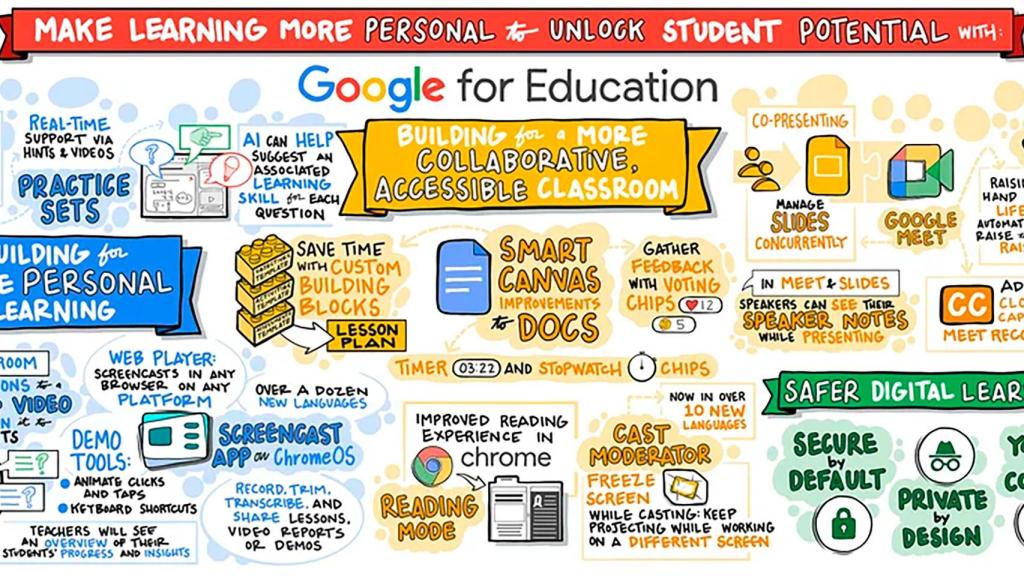 MAKE LEARNING MORE PERSONAL to UNLOCK STUDENT POTENTIAL WITH:
Google for Education
REAL-TIME
SUPPORT VIA
HINTS & VIDEOS
PRACTICE
SETS
AI CAN HELP
SUGGEST AN
ASSOCIATED
LEARNING
SKILL for EACH
QUESTION
BUILDING for a MORE
COLLABORATIVE,
ACCESSIBLE CLASSROOM
CO-PRESENTING
MANAGE
SLIDES
CONCURRENTLY
GOOGLE
MEET
RAISI
HAND
LIFE
AUTOMAT
RAISE
RAIS
UILDING for
E PERSONAL
EARNING
SAVE TIME
WITH CUSTOM
BUILDING
BLOCKS
TEMPLATE
LESSON
PLAN
SMART
CANVAS
IMPROVEMENTS
to DOCS
GATHER
FEEDBACK
WITH VOTING
CHIPS 12
5
IN MEET & SLIDES
SPEAKERS CAN SEE THEIR
SPEAKER NOTES
WHILE PRESENTING
CC
AD
CLO
CAP
MEET RECO
TIMER 03:22 AND STOPWATCH CHIPS
ROOM
ONS to a
VIDEO
N it to
TS
WEB PLAYER:
SCREENCASTS IN ANY
BROWSER ON ANY
PLATFORM
OVER A DOZEN
NEW LANGUAGES
DEMO
TOOLS:
ANIMATE CLICKS
AND TAPS
KEYBOARD SHORTCUTS
SCREENCAST
APP on ChromeOS
RECORD, TRIM,
TRANSCRIBE, AND
SHARE LESSONS,
VIDEO REPORTS
OR DEMOS
TEACHERS WILL SEE
AN OVERVIEW OF THEIR
STUDENTS' PROGRESS AND INSIGHTS
IMPROVED READING
EXPERIENCE IN
chrome
READING
MODE
NOW IN OVER
10 NEW
LANGUAGES
CAST
MODERATOR
FREEZE
SCREEN
WHILE CASTING: KEEP
PROJECTING WHILE WORKING
ON A DIFFERENT SCREEN
SAFER DIGITAL LEAR
SECURE
by
DEFAULT
PRIVATE
by
DESIGN
Y
CO